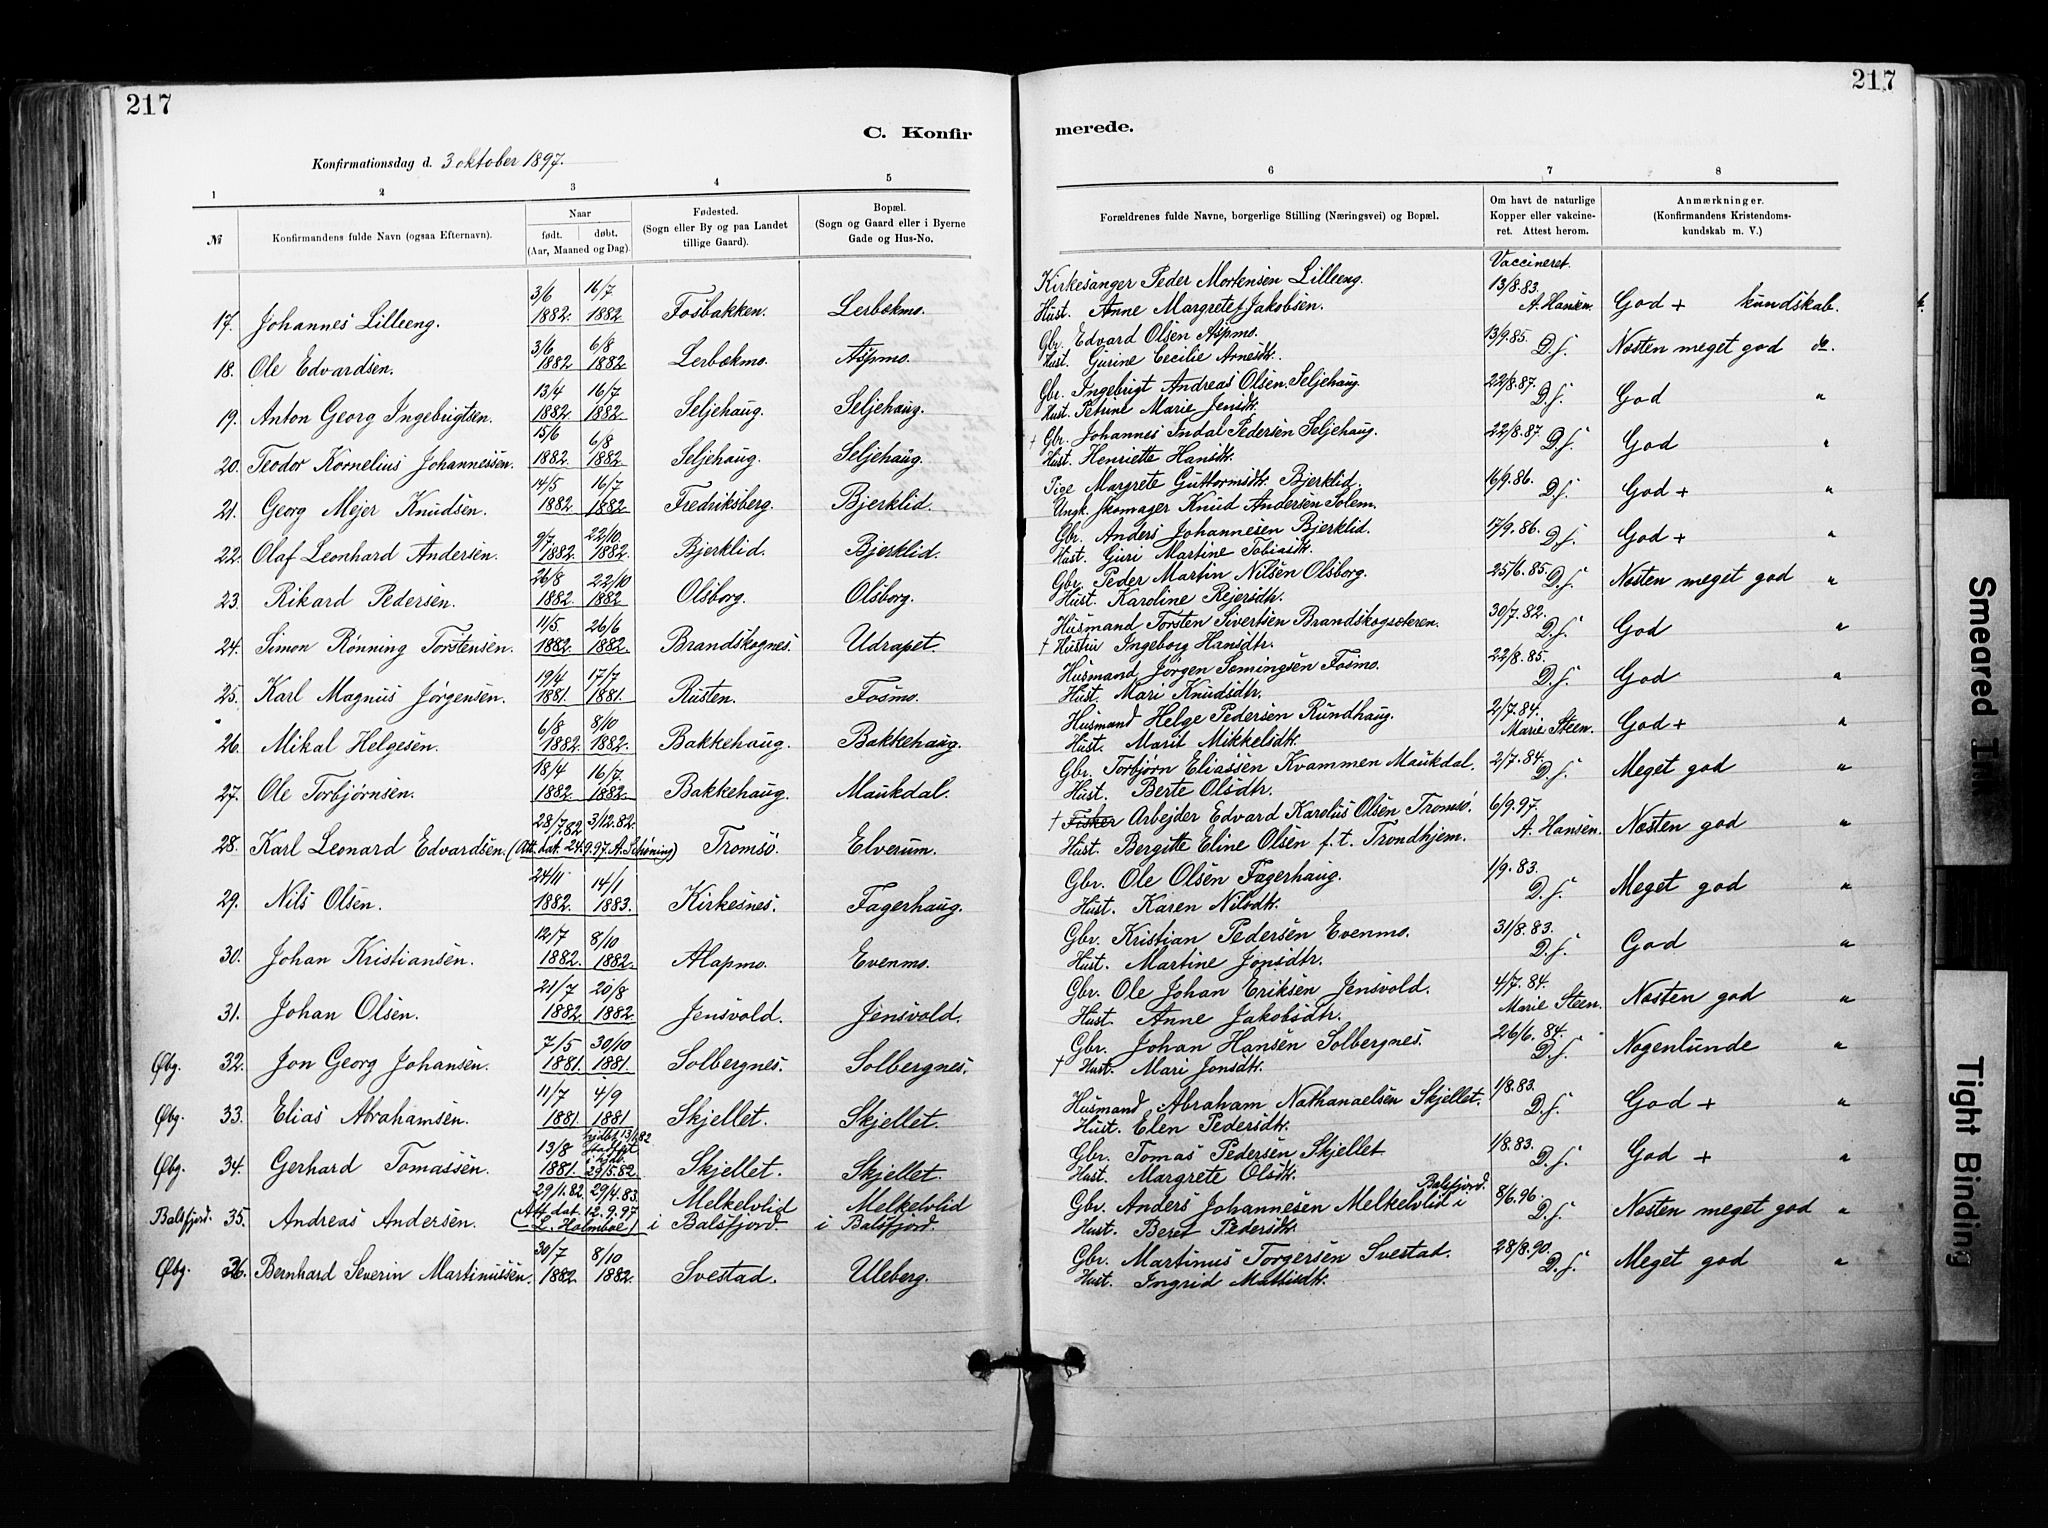 217
217
C. Konfir
merede.
Konfirmationsdag d. 3 oktober 1897.
1 2 3 4 5 6 7 8
№ Konfirmandens fulde Navn (ogsaa Efternavn). Naar født. døbt. (Aar, Maaned og Dag). Fødested. (Sogn eller By og paa Landet tillige Gaard). Bopæl. (Sogn og Gaard eller i Byerne Gade og Hus-No. Forældrenes fulde Navne, borgerlige Stilling (Næringsvei) og Bopæl. Om havt de naturlige Kopper eller vakcineret. Attest herom. Anmærkninger. (Konfirmandens Kristendomskundskab m. V.)
Vaccineret.
17. Johannes Lilleeng. 3/6 1882. 16/7 1882 Fosbakken. Lerbækmo. Kirkesanger Peder Mortensen Lilleeng. 13/8.83. A. Hansen. God + kundskab.
Hust. Anne Margrete Jakobsen.
18. Ole Edvardsen. 3/6 1882 6/8 1882 Lerbækmo. Aspmo. Gbr. Edvard Olsen Aspmo. 13/9.85. D.s. Næsten meget god do.
Hust. Gurine Cecilie Arnesdtr.
19. Anton Georg Ingebrigtsen. 13/4 1882. 16/7 1882. Seljehaug. Seljehaug. Gbr. Ingebrigt Andreas Olsen Seljehaug. 22/8.87. D.s. God "
Hust. Petrine Marie Jensdtr.
20. Teodor Kornelius Johannessen. 15/6 1882. 6/8 1882 Seljehaug. Seljehaug. † Gbr. Johannes Indal Pedersen Seljehaug. 22/8.87. D.s. God "
Hust. Henriette Hansdtr.
21. Georg Mejer Knudsen. 14/5 1882 16/7 1882 Fredriksberg. Bjerklid. Pige Margrete Guttormsdtr. Bjerklid. 16/9.86. D.s. God + "
Ungk. skomager Knud Andersen Solem.
22. Olaf Leonhard Andersen. 9/7 1882. 22/10. 1882. Bjerklid. Bjerklid. Gbr. Anders Johannesen Bjerklid. 17/9.86. D.s. God + "
Hust. Guri Martine Tobiasdtr.
23. Rikard Pedersen. 26/8 1882. 22/10 1882 Olsborg. Olsborg. Gbr. Peder Martin Nilsen Olsborg. 25/6.85. D.s. Næsten meget god "
Hust. Karoline Rejersdtr.
24. Simon Rønning Torstensen. 11/5. 1882. 26/6 1882. Brandskognes. Udrapet. Husmand Torsten Sivertsen Brandskogsæteren. 30/7.82. D.s. God "
† Hustru Ingeborg Hansdtr.
25. Karl Magnus Jørgensen. 19/4 1881. 17/7 1881. Rusten. Fosmo. Husmand Jørgen Somingsen Fosmo. 22/8.85. D.s. God "
Hust. Mari Knudsdtr.
26. Mikal Helgesen. 6/8 1882. 8/10 1882. Bakkehaug. Bakkehaug. Husmand Helge Pedersen Rundhaug. 2/7.84. Marie Steen. God + "
Hust. Marit Mikkelsdtr.
27. Ole Torbjørnsen. 18/4 1882. 16/7. 1882. Bakkehaug. Maukdal. Gbr. Torbjørn Eliassen Kvammen Maukdal. 2/7.84. D.s. Meget god "
Hust. Berte Olsdtr.
28. Karl Leonard Edvardsen. 28/7.82 3/12.82. (Att. dat. 24.9.97. A. Schøning) Tromsø. Elverum. † Fisker Arbejder Edvard Karolius Olsen Tromsø. 6/9.97. A. Hansen. Næsten god "
Hust. Bergitte Eline Olsen f.t. Trondhjem.
29. Nils Olsen. 24/11 1882. 14/1 1883. Kirkesnes. Fagerhaug. Gbr. Ole Olsen Fagerhaug. 1/9.83. D.s. Meget god "
Hust. Karen Nilsdtr.
30. Johan Kristiansen. 12/7 1882. 8/10 1882. Alapmo. Evenmo. Gbr. Kristian Pedersen Evenmo. 31/8.83. D.s. God "
Hust. Martine Jonsdtr.
31. Johan Olsen. 21/7 1882 20/8 1882. Jensvold. Jensvold. Gbr. Ole Johan Eriksen Jensvold. 4/7.84. Marie Steen. Næsten god "
Hust. Anne Jakobsdtr.
Øbg. 32. Jon Georg Johansen. 7/5 1881. 30/10 1881. Solbergnes. Solbergnes. Gbr. Johan Hansen Solbergnes. 26/6.84. D.s. Nogenlunde "
† Hust. Mari Jonsdtr.
Øbg. 33. Elias Abrahamsen. 11/7 1881. 4/9 1881 Skjellet. Skjellet. Husmand Abraham Nathanaelsen Skjellet. 1/8.83. D.s. God + "
Hust. Elen Pedersdtr.
Øbg. 34. Gerhard Tomassen. 13/8 1881. hjdbt. 13/1.82 Stadfæst i 29/5.82. Skjellet. Skjellet. Gbr. Tomas Pedersen Skjellet 1/8.83. D.s. God + "
Hust. Margrete Olsdtr.
Balsfjord. 35. Andreas Andersen. 29/1.82. 29/4.83. (Att. dat. 12.9.97 L. Holmboe) Melkelvlid i Balsfjord. Melkelvlid i Balsfjord. Gbr. Anders Johannesen Melkelvlid i Balsfjord. 8/6.96. D.s. Næsten meget god "
Hust. Beret Pedersdtr.
Øbg. 36. Bernhard Severin Martinussen. 30/7 1882. 8/10 1882. Svestad. Uleberg. Gbr. Martinus Torgersen Svestad. 28/8.90. D.s. Meget god "
Hust. Ingrid Mattisdtr.
Smeared Ink
Tight Binding